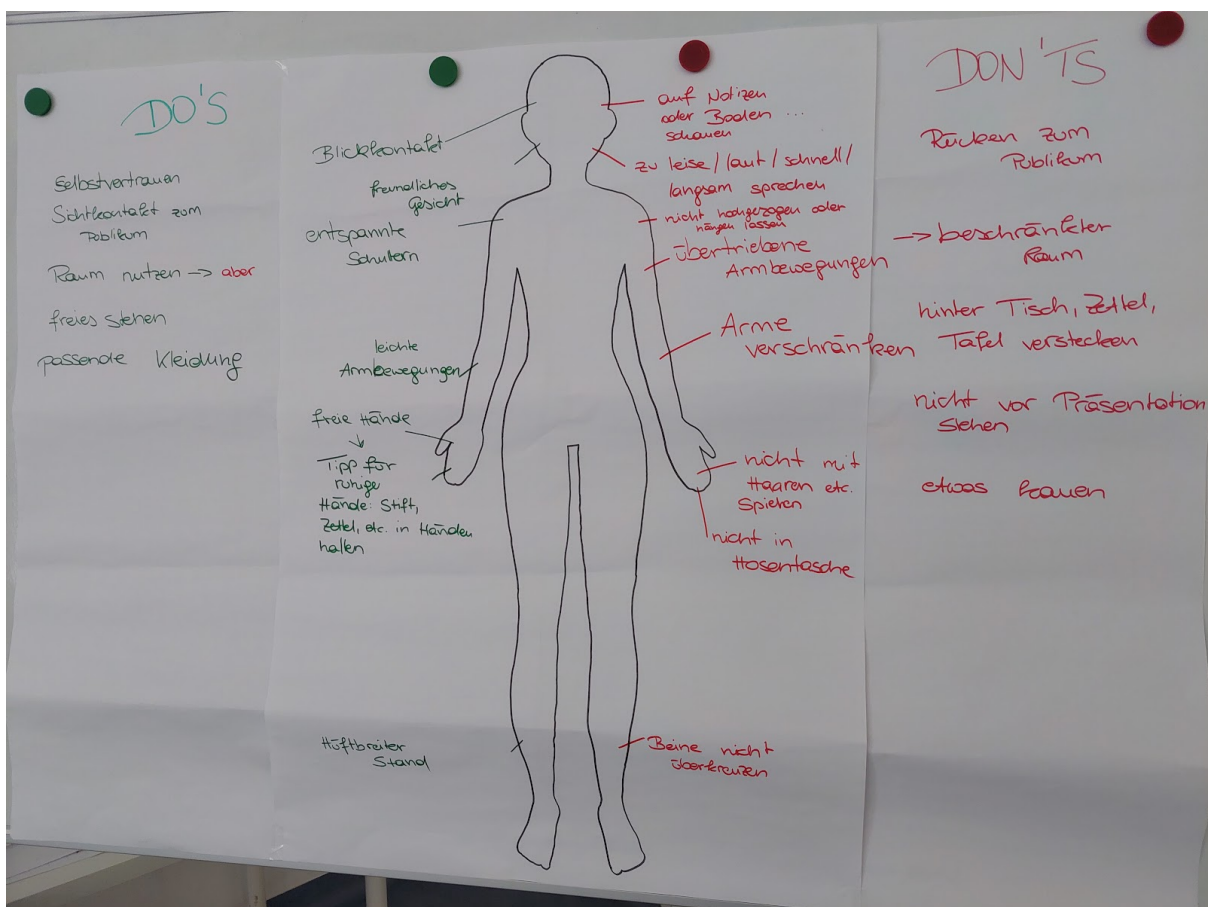 DO'S
Selbstvertrauen
Sichtkontakt zum
Publikum
Raum nutzen -> aber
freies stehen
passende Kleidung
Blickkontakt
freundliches
Gesicht
entspannte
Schultern
leichte
Armbewegungen
freie Hände
↓
Tipp für
ruhige
Hände: Stift,
Zettel, etc. in Händen
halten
Hüftbreiter
Stand
auf Notizen
oder Boden ...
schauen
zu leise / laut / schnell /
langsam sprechen
nicht hochgezogen oder
hängen lassen
übertriebene
Armbewegungen
Arme
verschränken
nicht mit
Haaren etc.
Spielen
nicht in
Hosentasche
Beine nicht
überkreuzen
DON'TS
Rücken zum
Publikum
-> beschränkter
Raum
hinter Tisch, Zettel,
Tafel verstecken
nicht vor Präsentation
stehen
etwas kauen